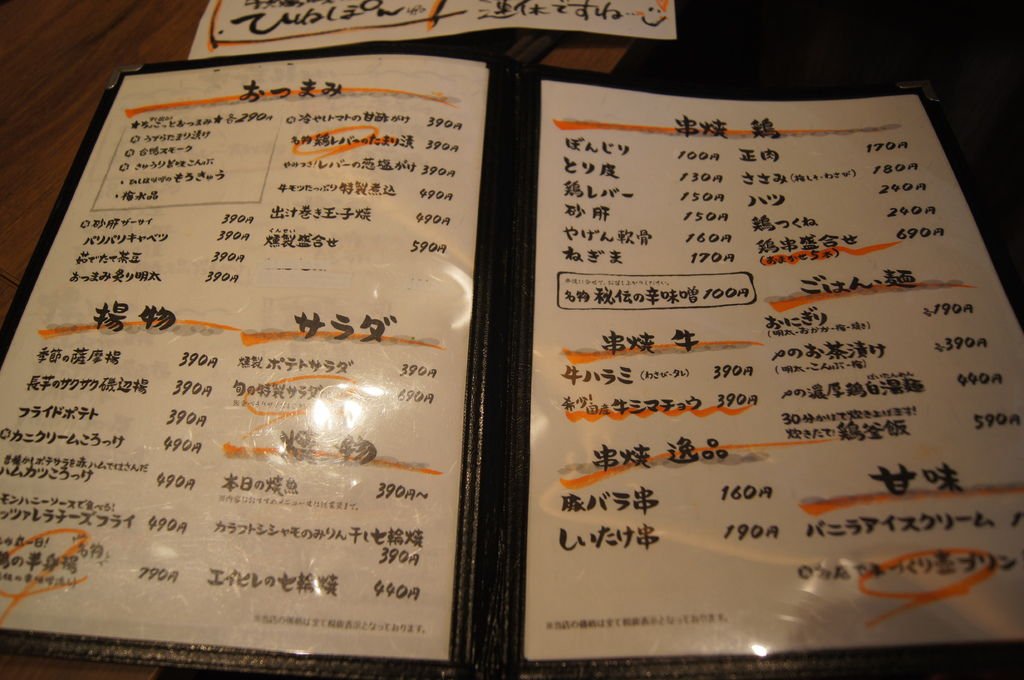 おつまみ
★ちょこっとおつまみ★各290円
うずらたまり漬け
合鴨スモーク
きゅうりと塩こんぶ
もろきゅう
・梅水晶
砂肝ザーサイ 390円
パリパリキャベツ 390円
茹でたて茶豆 390円
おつまみ炙り明太 390円
冷やしトマトの甘酢がけ 390円
名物 鶏レバーのたまり漬 390円
やみつき!レバーの葱塩がけ 390円
牛モツたっぷり特製煮込 490円
出汁巻き玉子焼 490円
くんせい
燻製盛合せ 590円
揚物
季節の薩摩揚 390円
長芋のサクサク磯辺揚 390円
フライドポテト 390円
カニクリームころっけ 490円
昔懐かしポテサラを赤ハムではさんだ
ハムカツころっけ 490円
モンハニーソースで食べる!
ッツァレラチーズフライ 490円
名物
鶏の半身揚 790円
サラダ
燻製 ポテトサラダ 390円
旬の特製サラダ 690円
焼物
本日の焼魚 390円〜
カラフトシシャモのみりん干し七輪焼
390円
エイヒレの七輪焼 440円
※当店の価格は全て税抜表示となっております。
串焼 鶏
ぼんじり 100円
とり皮 130円
鶏レバー 150円
砂肝 150円
やげん軟骨 160円
ねぎま 170円
正肉 170円
ささみ(梅しそ・わさび) 180円
ハツ 240円
鶏つくね 240円
鶏串盛合せ 690円
(おまかせ5本)
名物 秘伝の辛味噌 100円
串焼 牛
牛ハラミ(わさび・タレ) 390円
希少!国産牛シマチョウ 390円
串焼 逸品
豚バラ串 160円
しいたけ串 190円
ごはん・麺
おにぎり 各190円
(明太・おかか・梅・焼き)
〆のお茶漬け 各390円
(明太・こんぶ・梅)
ぱいたんめん
〆の濃厚鶏白湯麺 440円
30分かけて炊き上げます!
炊きたて!鶏釜飯 590円
甘味
バニラアイスクリーム
当店で手づくり壺プリン
※当店の価格は全て税抜表示となっております。